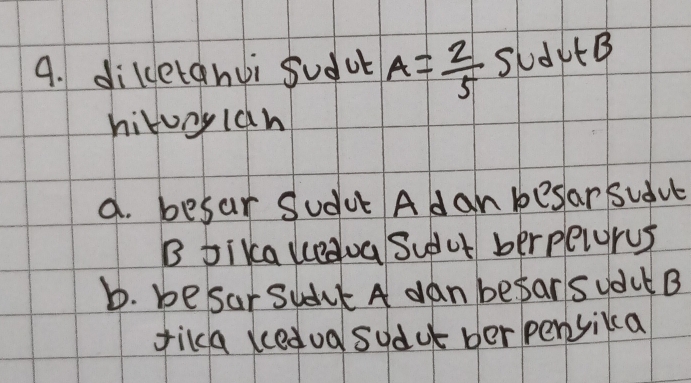 9. diketahui sudut A = 2/5 sudut B
hitunglah
a. besar sudut A dan besar sudut
B jika kedua sudut berpelurus
b. besar sudut A dan besar sudut B
jika kedua sudut berpenyika